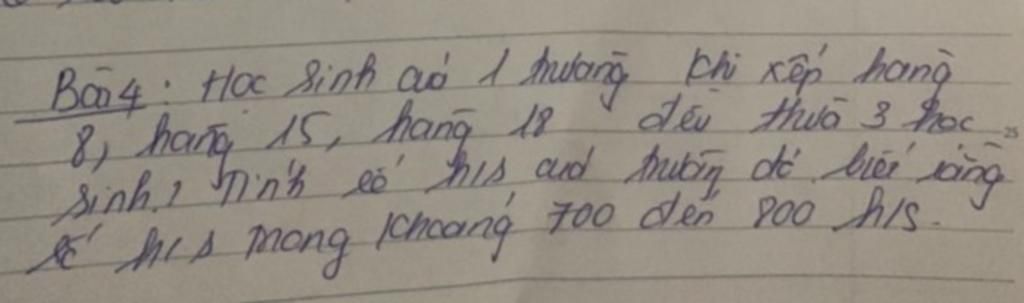 Bài 4: Học sinh của 1 trường khi xếp hàng
8, hàng 15, hàng 18 đều thừa 3 học
sinh. Tính số h/s của trường đó biết rằng
số h/s trong khoảng 700 đến 800 h/s.